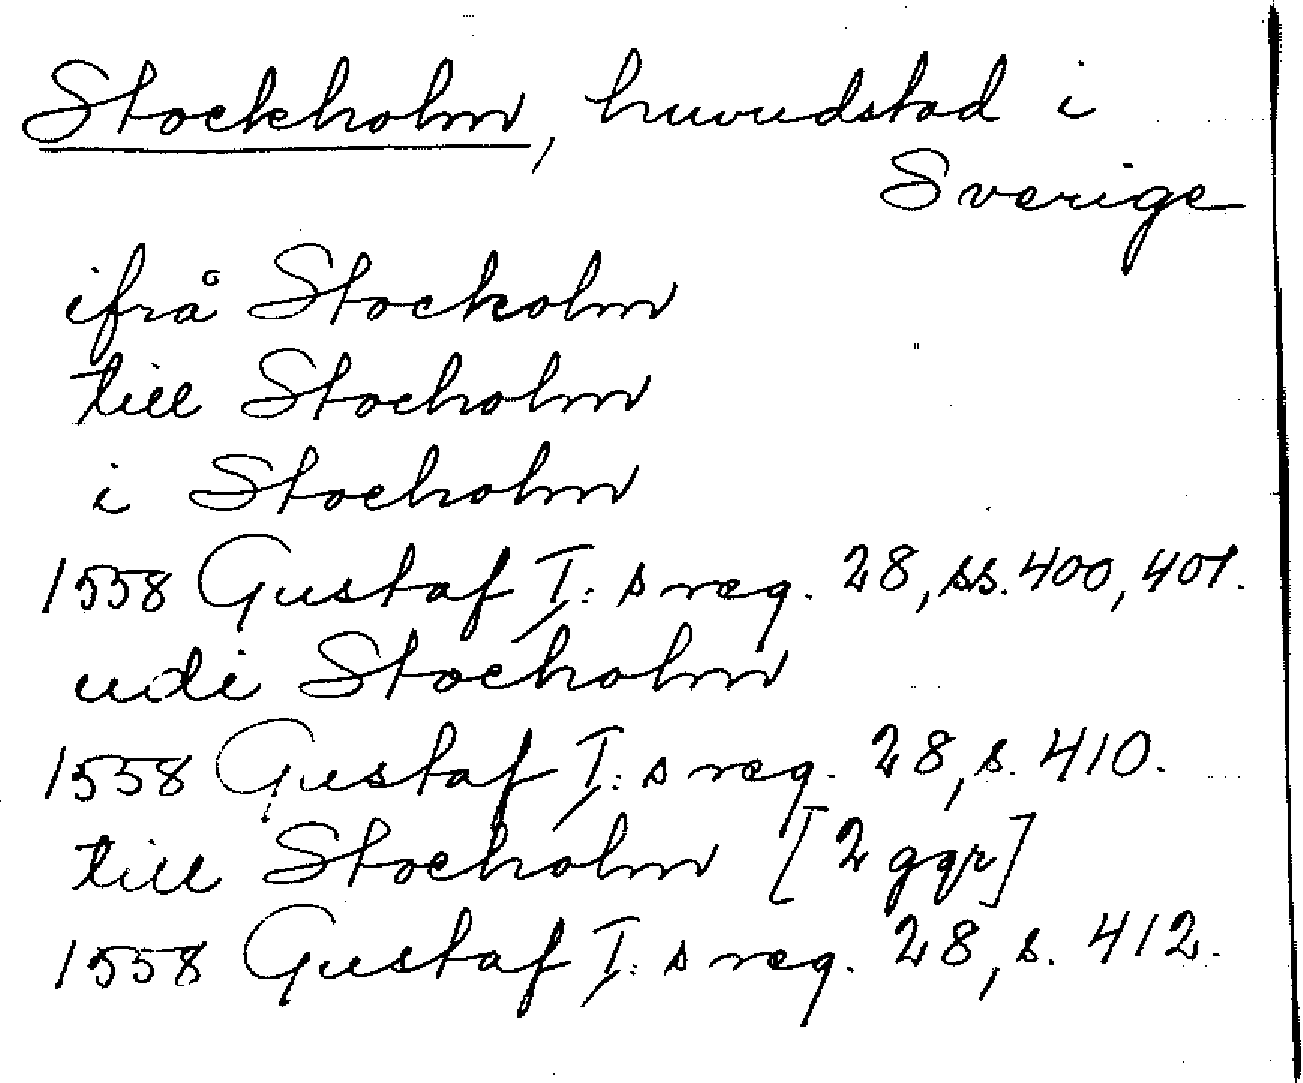 Stockholm, huvudstad i
Sverige
ifrå Stockolm
till Stocholm
i Stocholm
1558 Gustaf I:s reg. 28, ss. 400, 401.
udi Stocholm
1558 Gustaf I:s reg. 28, s. 410.
till Stocholm [2 ggr]
1558 Gustaf I:s reg. 28, s. 412.